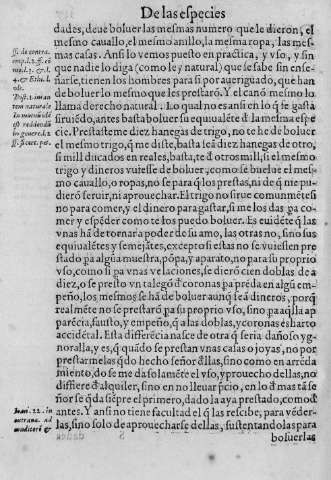 De las especies
dades, deue boluer las mesmas numero que le dieron, el
mesmo cauallo, el mesmo anillo, la mesma ropa, las mes-
mas casas. Ansi lo vemos puesto en practica, y vso, y sin
que nadie lo diga (como ley natural) que se sabe sin ense-
ñarse, tienen los hombres para si por aueriguado, que han
de boluer lo mesmo que les prestarõ. Y el canõ mesmo lo
llama derecho natural. Lo qual no es ansi en lo q̃ se gasta
siruiẽdo, antes basta boluer su equiualẽte d̃ la mesma espe
cie. Prestasteme diez hanegas de trigo, no te he de boluer
el mesmo trigo, q̃ me diste, basta seã diez hanegas de otro,
si mill ducados en reales, basta, te d̃ otros mill, si el mesmo
trigo y dineros vuiesse de boluer, como se buelue el mes-
mo cauallo, o ropas, no se para q̃ los prestas, ni de q̃ nie pu-
dierõ seruir, ni aprouechar. El trigo no sirue comunmẽte si
no para comer, y el dinero para gastar, si me los das pa co-
mer y espẽder como te los puedo boluer. Es euidẽte q̃ las
vnas hã de tornar a poder de su amo, las otras no, sino sus
equiualẽtes y semejãtes, excepto si estas no se vuiessen pre
stado pa algũa muestra, põpa, y aparato, no para su proprio
vso, como si pa vnas velaciones, se dierõ cien doblas de a
diez, o se presto vn talegõ d̃ coronas pa prẽda en algũ em
peño, los mesmos se hã de boluer aunq̃ seã dineros, porq̃
realmẽte no se prestarõ pa su proprio vso, sino pa aq̃lla ap
parẽcia, fausto, y empeño, q̃ a las doblas, y coronas es harto
accidẽtal. Esta differẽcia nasce de otra q̃ seria dañoso yg-
norarla, y es, q̃ quãdo se prestan vnas casas o joyas, no por
prestarmelas q̃do hecho señor d̃llas, sino como en arrẽda
miento, do se me da solamẽte el vso, y prouecho dellas, no
differe d̃ alquiler, sino en no lleuar p̃cio, en lo d̃mas tã se
ñor se q̃da siẽpre el primero, dado la aya prestado, como d̃
antes. Y ansi no tiene facultad el q̃ las rescibe, para vẽder-
las, sino solo de aprouecharse dellas, sustentandolas para
boluerlas